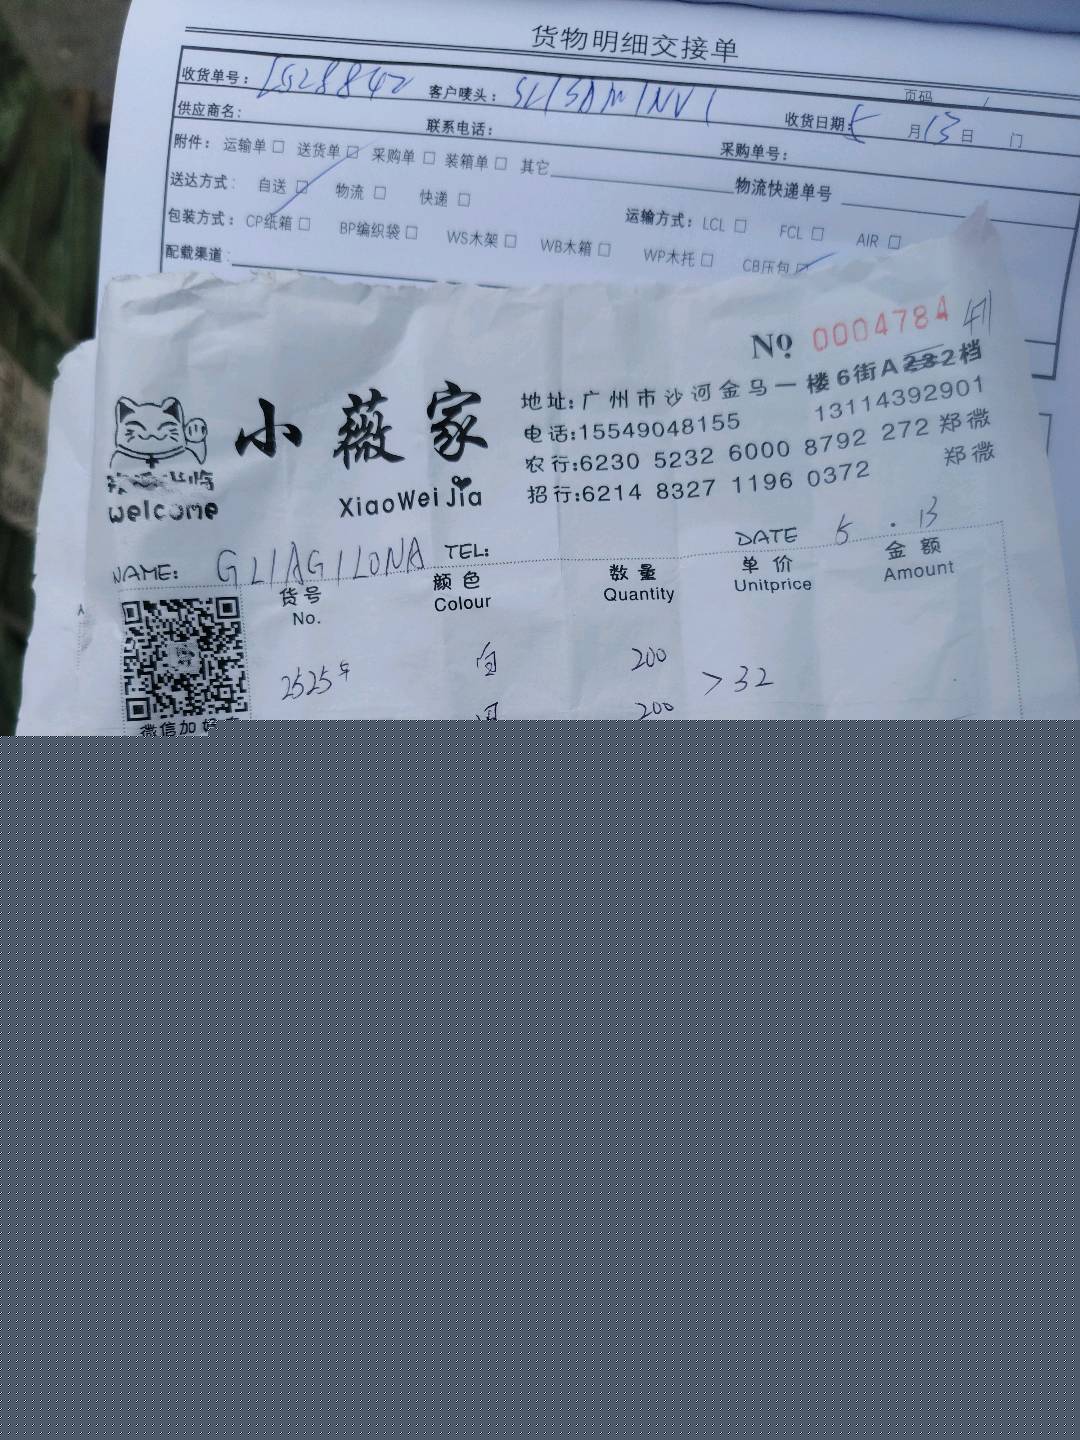 货物明细交接单
收货单号： LS28840 客户唛头： 页码
供应商名： 联系电话： 收货日期： 5 月 13 日 门
附件： 运输单 □ 送货单 □ 采购单 □ 装箱单 □ 其它 采购单号：
送达方式： 自送 □ 物流 □ 快递 □ 物流快递单号
包装方式： CP纸箱 □ BP编织袋 □ WS木架 □ WB木箱 □ WP木托 □ CB压包 □ 运输方式： LCL □ FCL □ AIR □
配载渠道：
№ 0004784
小薇家
XiaoWeiJia
welcome
地址：广州市沙河金马一楼6街A232档
电话：15549048155 13114392901
农行：6230 5232 6000 8792 272 郑微
招行：6214 8327 1196 0372 郑微
NAME: GLIAGILONA TEL: DATE 5 . 13
货号 颜色 数量 单价 金额
No. Colour Quantity Unitprice Amount
2525 白 200 > 32
200
微信加好